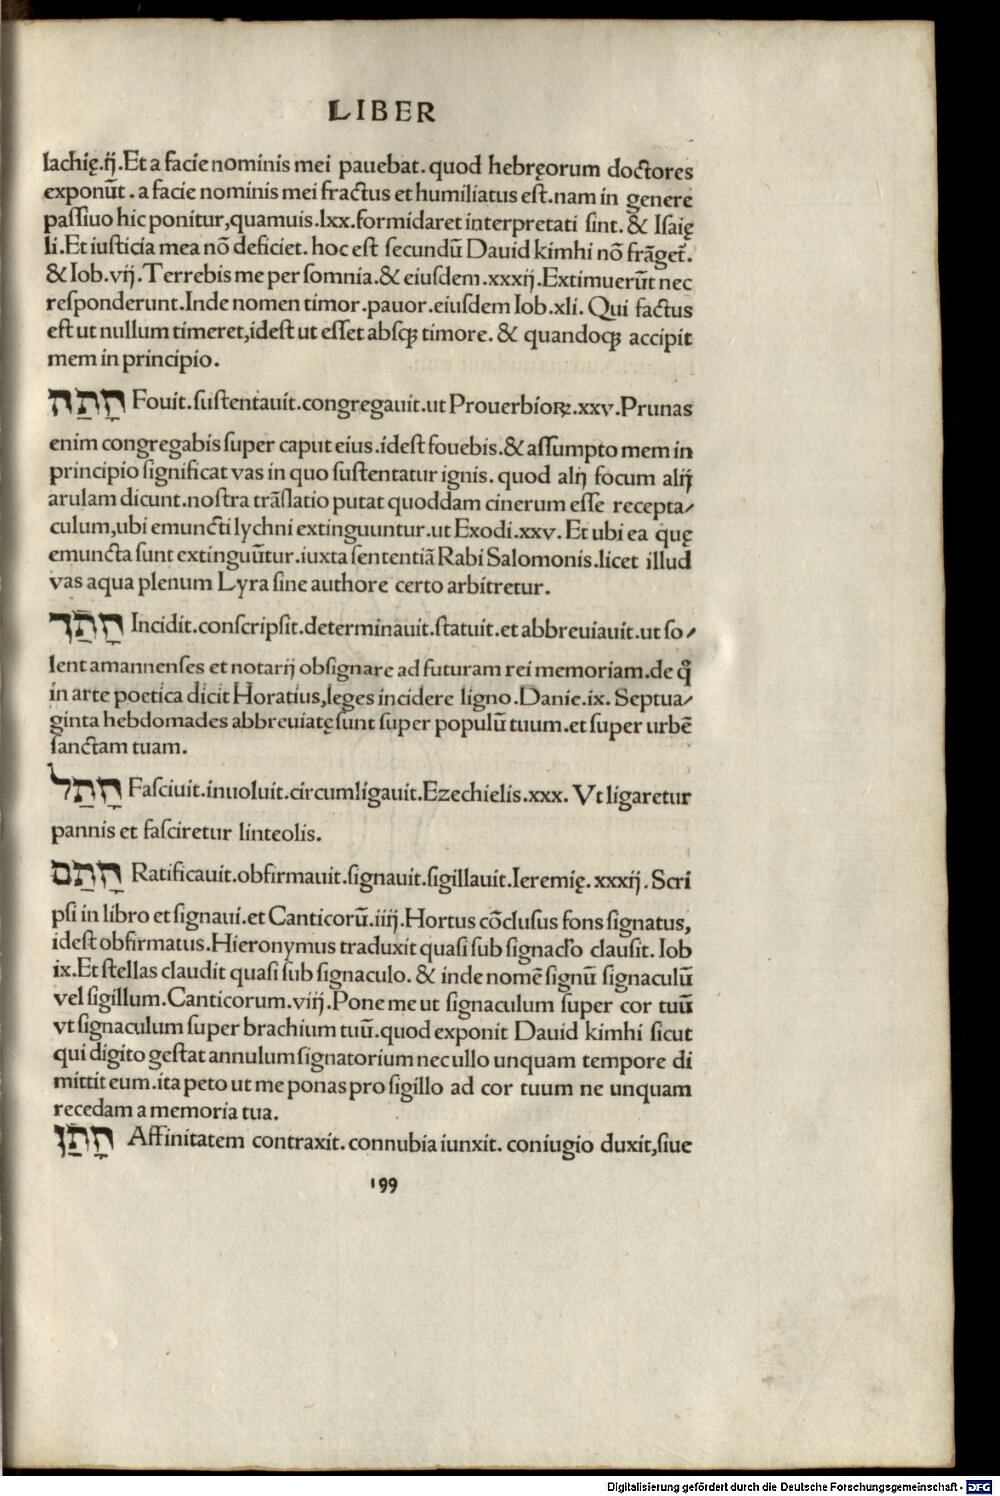 LIBER
lachię.ij.Et a facie nominis mei pauebat. quod hebręorum doctores
exponūt. a facie nominis mei fractus et humiliatus est. nam in genere
passiuo hic ponitur, quamuis .lxx. formidaret interpretati sint. & Isaię
li. Et iusticia mea nō deficiet. hoc est secundū Dauid kimhi nō frāget̄.
& Iob .vij. Terrebis me per somnia. & eiusdem .xxxij. Extimuerūt nec
responderunt. Inde nomen timor. pauor. eiusdem Iob. xli. Qui factus
est ut nullum timeret, idest ut esset absqȝ timore. & quandoqȝ accipit
mem in principio.
חָתַה Fouit. sustentauit. congregauit. ut Prouerbioꝝ. xxv. Prunas
enim congregabis super caput eius. idest fouebis. & assumpto mem in
principio significat vas in quo sustentatur ignis. quod alij focum alij
arulam dicunt. nostra trāslatio putat quoddam cinerum esse recepta⸗
culum, ubi emuncti lychni extinguuntur. ut Exodi. xxv. Et ubi ea quę
emuncta sunt extinguūtur. iuxta sententiā Rabi Salomonis. licet illud
vas aqua plenum Lyra sine authore certo arbitretur.
חָתַךְ Incidit. conscripsit. determinauit. statuit. et abbreuiauit. ut so⸗
lent amannenses et notarij obsignare ad futuram rei memoriam. de q̄
in arte poetica dicit Horatius, leges incidere ligno. Danie. ix. Septua⸗
ginta hebdomades abbreuiatę sunt super populū tuum. et super urbē
sanctam tuam.
חָתַל Fasciuit. inuoluit. circumligauit. Ezechielis. xxx. Vt ligaretur
pannis et fasciretur linteolis.
חָתַם Ratificauit. obfirmauit. signauit. sigillauit. Ieremię. xxxij. Scri
psi in libro et signaui. et Canticorū. iiij. Hortus cōclusus fons signatus,
idest obfirmatus. Hieronymus traduxit quasi sub signaclo clausit. Iob
ix. Et stellas claudit quasi sub signaculo. & inde nomē signū signaculū
vel sigillum. Canticorum. viij. Pone me ut signaculum super cor tuū
vt signaculum super brachium tuū. quod exponit Dauid kimhi sicut
qui digito gestat annulum signatorium nec ullo unquam tempore di
mittit eum. ita peto ut me ponas pro sigillo ad cor tuum ne unquam
recedam a memoria tua.
חָתַן Affinitatem contraxit. connubia iunxit. coniugio duxit, siue
199
Digitalisierung gefördert durch die Deutsche Forschungsgemeinschaft - DFG